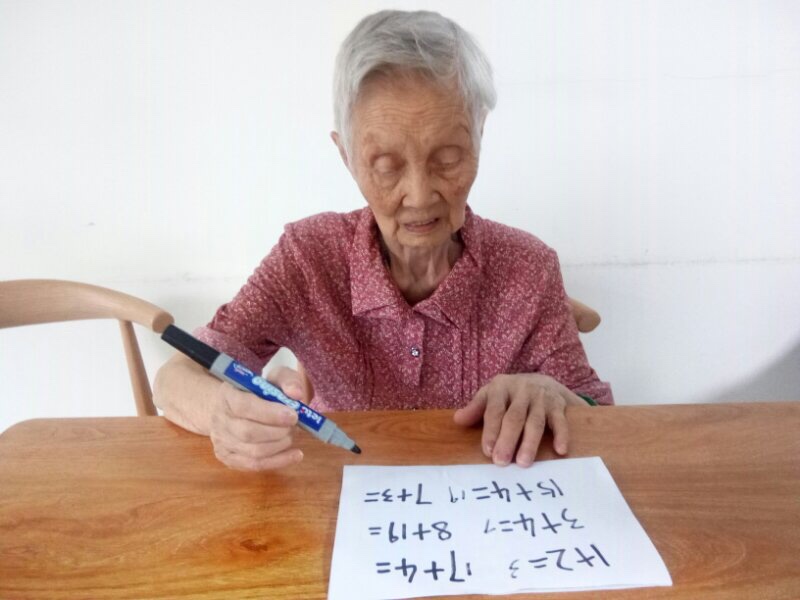 1+2=3 17+4=
3+4=7 8+19=
15+4=19 7+3=